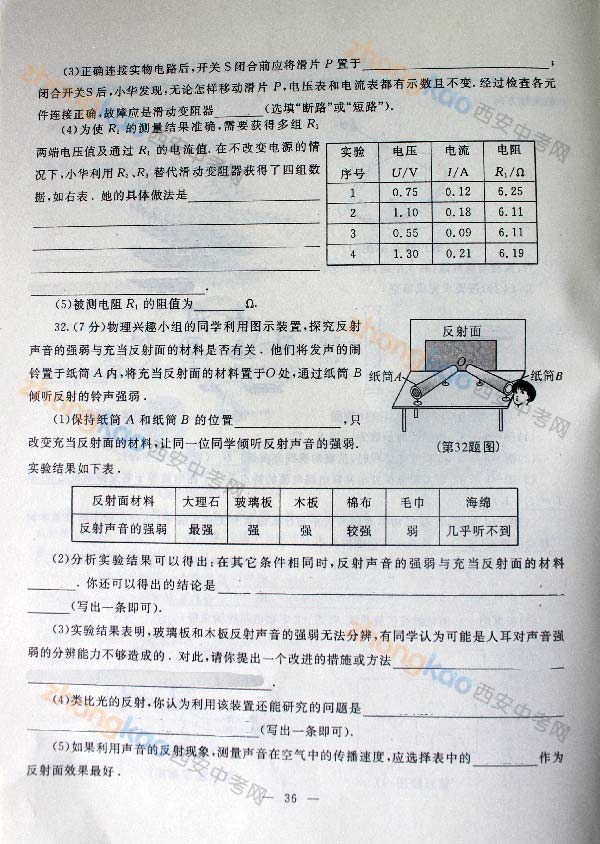 (3)正确连接实物电路后,开关S闭合前应将滑片P置于
闭合开关S后,小华发现,无论怎样移动滑片P,电压表和电流表都有示数且不变.经过检查各元
件连接正确,故障应是滑动变阻器 (选填"断路"或"短路").
(4)为使R₁的测量结果准确,需要获得多组R₁
两端电压值及通过R₁的电流值.在不改变电源的情
况下,小华利用R₂、R₃替代滑动变阻器获得了四组数
据,如右表.她的具体做法是
实验序号 电压U/V 电流I/A 电阻R₁/Ω
1 0.75 0.12 6.25
2 1.10 0.18 6.11
3 0.55 0.09 6.11
4 1.30 0.21 6.19
(5)被测电阻R₁的阻值为 Ω.
32.(7分)物理兴趣小组的同学利用图示装置,探究反射
声音的强弱与充当反射面的材料是否有关.他们将发声的闹
铃置于纸筒A内,将充当反射面的材料置于O处,通过纸筒B
倾听反射的铃声强弱.
反射面
O
纸筒A
纸筒B
(第32题图)
(1)保持纸筒A和纸筒B的位置 ,只
改变充当反射面的材料,让同一位同学倾听反射声音的强弱.
实验结果如下表.
反射面材料 大理石 玻璃板 木板 棉布 毛巾 海绵
反射声音的强弱 最强 强 强 较强 弱 几乎听不到
(2)分析实验结果可以得出:在其它条件相同时,反射声音的强弱与充当反射面的材料
.你还可以得出的结论是
(写出一条即可).
(3)实验结果表明,玻璃板和木板反射声音的强弱无法分辨,有同学认为可能是人耳对声音强
弱的分辨能力不够造成的.对此,请你提出一个改进的措施或方法
.
(4)类比光的反射,你认为利用该装置还能研究的问题是
(写出一条即可).
(5)如果利用声音的反射现象,测量声音在空气中的传播速度,应选择表中的 作为
反射面效果最好.
— 36 —
zhongkao西安中考网
zhongkao西安中考网
zhongkao西安中考网
zhongkao西安中考网